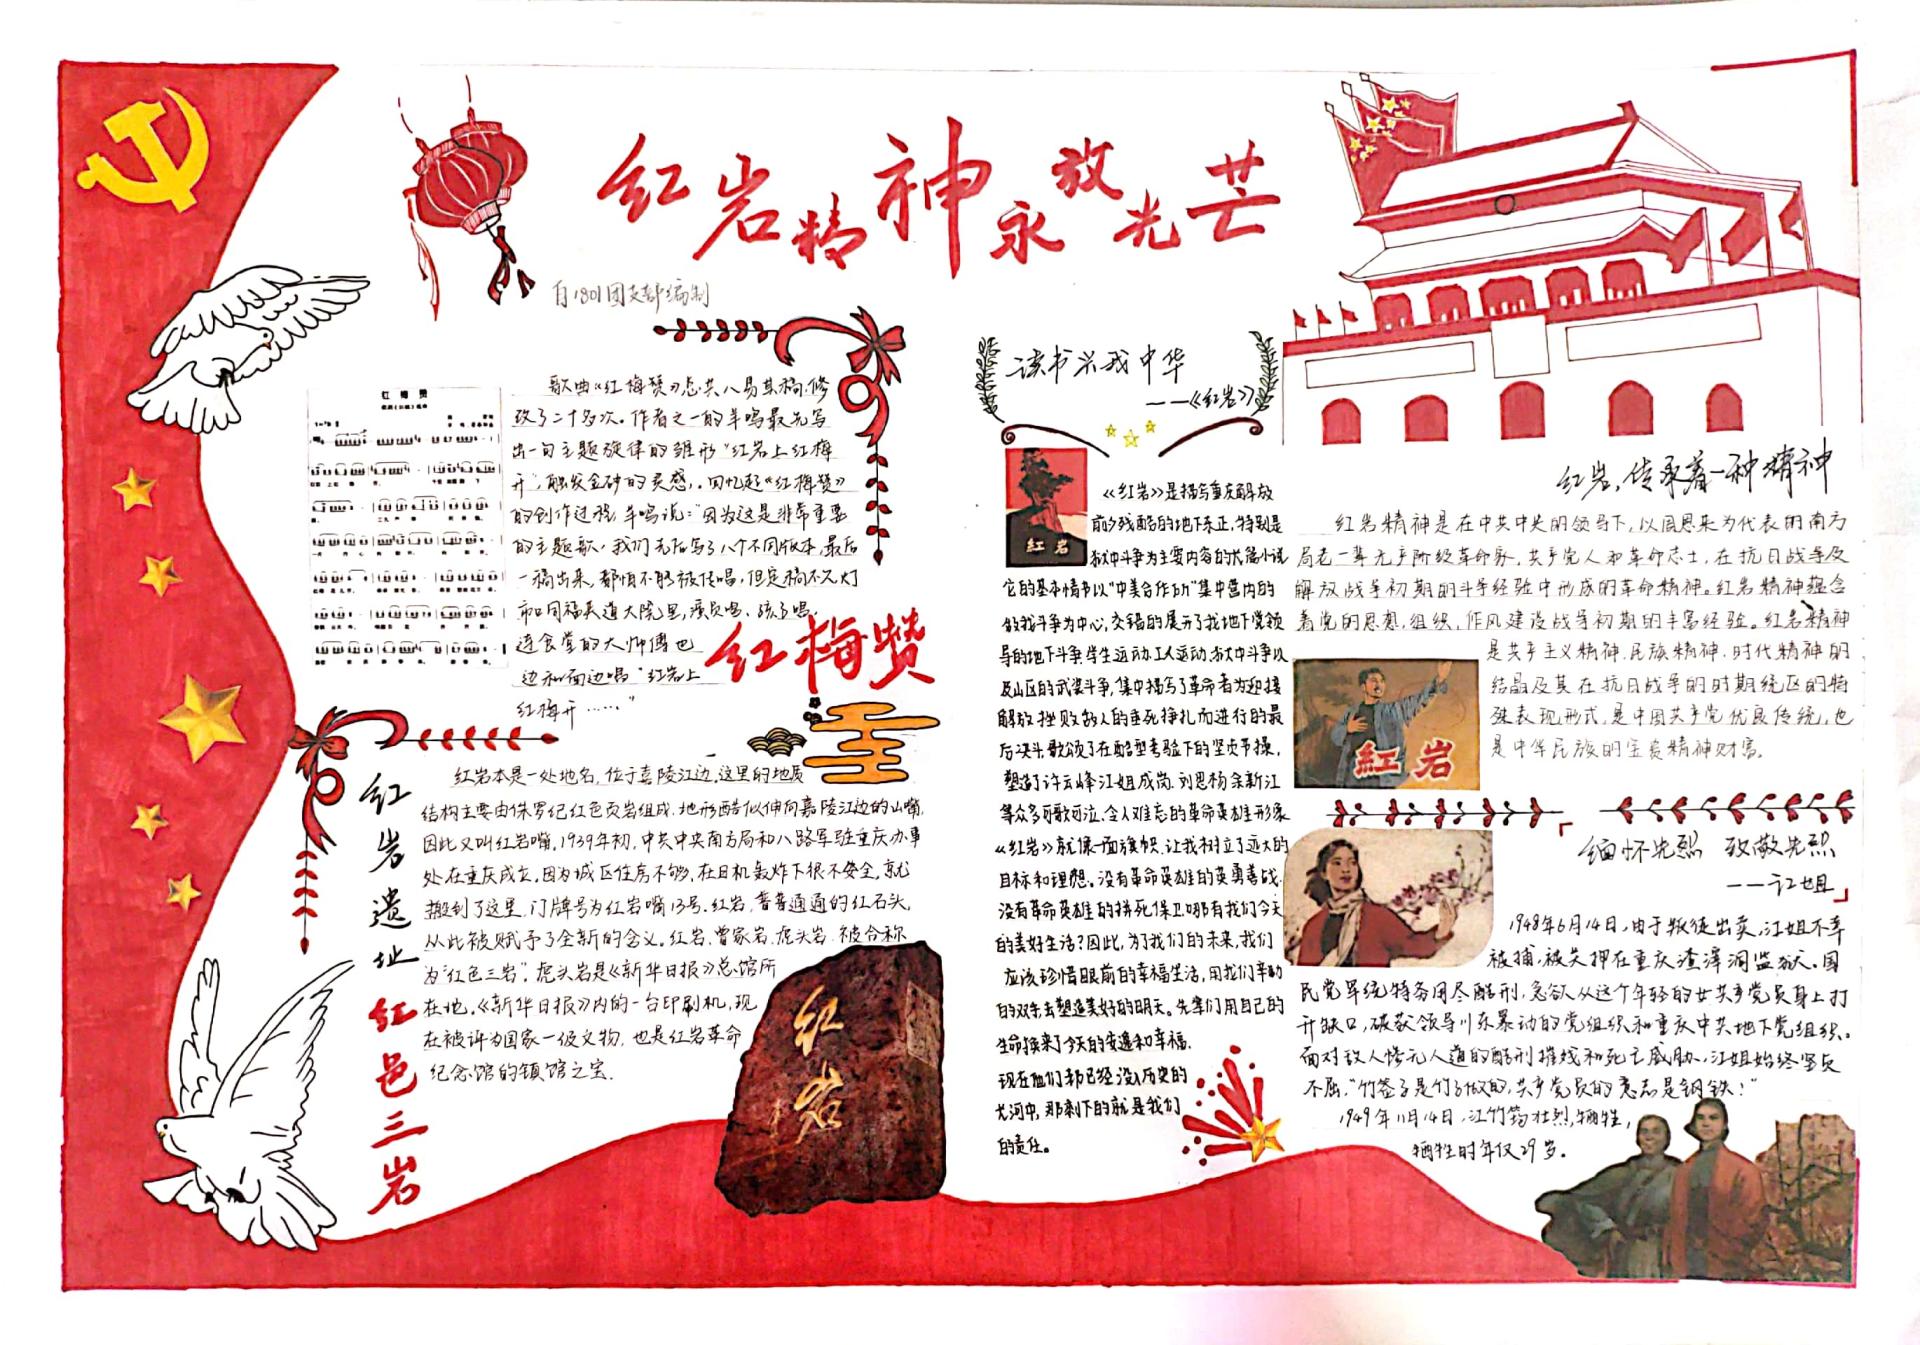 红岩精神永放光芒
自1801团支部编制
红梅赞
歌曲《红梅赞》总共八易其稿,修
改了二十多次。作者之一的羊鸣最先写
出一句主题旋律的雏形“红岩上红梅
开”,触发金砂的灵感,.回忆起《红梅赞》
的创作过程,羊鸣说:“因为这是非常重要
的主题歌,我们先后写了八个不同版本,最后
一稿出来,都怕不能被传唱,但定稿不久,灯
市口同福夹道大院里,演员唱、孩子唱,
连食堂的大师傅也
边和面边唱“红岩上
红梅开……”
红梅赞
红岩遗址
红色三岩
红岩本是一处地名,位于嘉陵江边,这里的地质
结构主要由侏罗纪红色页岩组成,地形酷似伸向嘉陵江边的山嘴,
因此又叫红岩嘴,1939年初,中共中央南方局和八路军驻重庆办事
处在重庆成立,因为城区住房不够,在日机轰炸下很不安全,就
搬到了这里,门牌号为红岩嘴13号.红岩,普普通通的红石头,
从此被赋予了全新的含义。红岩、曾家岩、虎头岩、被合称
为“红色三岩”.虎头岩是《新华日报》总馆所
在地,《新华日报》内的一台印刷机,现
在被评为国家一级文物,也是红岩革命
纪念馆的镇馆之宝.
红岩
读书兴我中华
——《红岩》
红岩
《红岩》是描写重庆解放
前夕残酷的地下东正,特别是
狱中斗争为主要内容的长篇小说
它的基本情节以“中美合作所”集中营内的
敌我斗争为中心,交错的展开了我地下党领
导的地下斗争,学生运动,工人运动,狱中斗争以
及山区的武装斗争,集中描写了革命者为迎接
解放、挫败敌人的垂死挣扎而进行的最
后决斗,歌颂了在酷型考验下的坚贞节操,
塑造了许云峰,江姐,成岗,刘思杨,余新江
等众多可歌可泣、令人难忘的革命英雄形象
《红岩》就像一面旗帜,让我树立了远大的
目标和理想。没有革命英雄的英勇善战、
没有革命英雄的拼死保卫,哪有我们今天
的美好生活?因此,为了我们的未来,我们
应该珍惜眼前的幸福生活,用我们辛勤
的双手去塑造美好的明天。先辈们用自己的
生命换来了今天的安逸和幸福,
现在他们都已经没入历史的
长河中,那剩下的就是我们
的责任。
红岩,传承着一种精神
红岩精神是在中共中央的领导下,以周恩来为代表的南方
局老一辈无产阶级革命家、共产党人和革命志士,在抗日战争及
解放战争初期的斗争经验中形成的革命精神。红岩精神蕴含
着党的思想,组织,作风建设战争初期的丰富经验。红岩精神
是共产主义精神、民族精神、时代精神的
结晶及其在抗日战争的时期统区的特
殊表现形式,是中国共产党优良传统,也
是中华民族的宝贵精神财富。
紅岩
缅怀先烈 致敬先烈
——江姐
1948年6月14日,由于叛徒出卖,江姐不幸
被捕,被关押在重庆渣滓洞监狱。国
民党军统特务用尽酷刑,急欲从这个年轻的女共产党员身上打
开缺口,破获领导川东暴动的党组织和重庆中共地下党组织。
面对敌人惨无人道的酷刑摧残和死亡威胁,江姐始终坚贞
不屈,“竹签子是竹子做的,共产党员的意志是钢铁!”
1949年11月14日,江竹筠壮烈牺牲,
牺牲时年仅29岁.